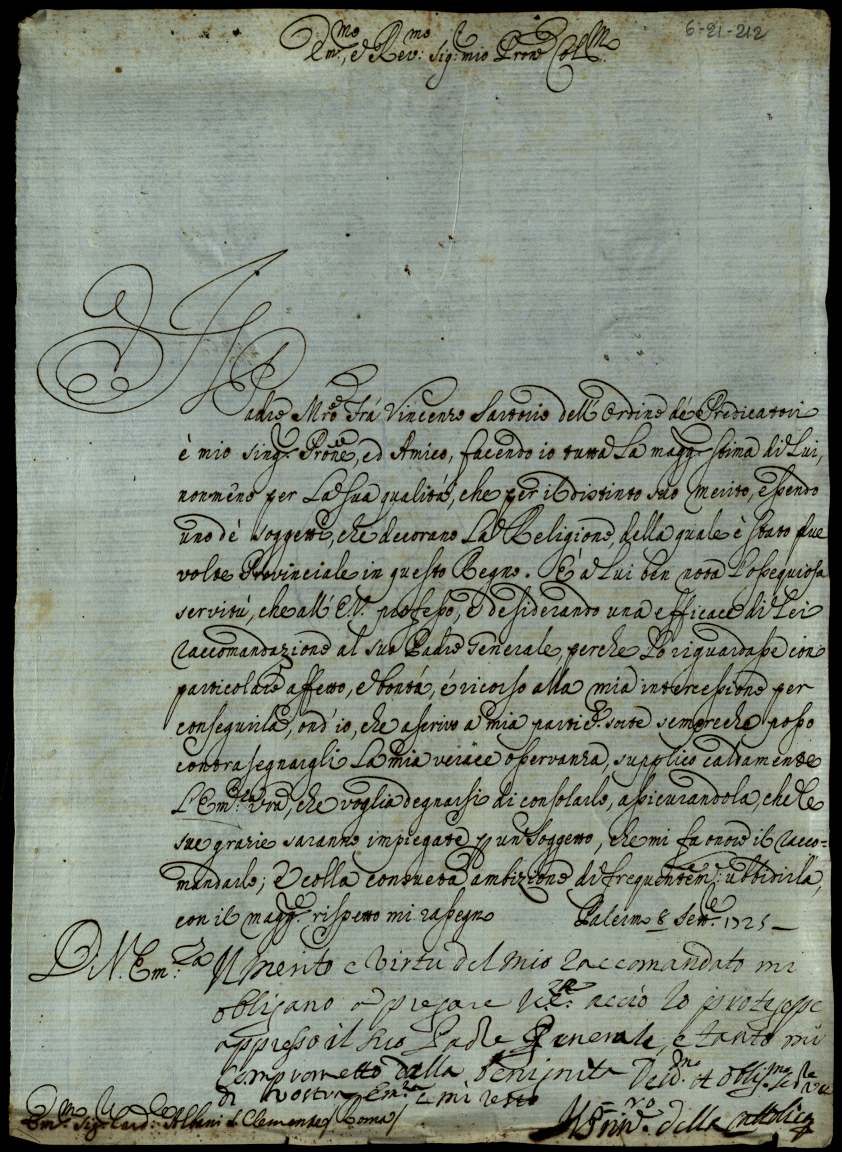 6-21-212
Em.mo, e Rev.mo Sig.r mio Pron Col.mo
Il Padre Mro Frà Vincenzo Sartorio dell'Ordine dé Predicatori
è mio sing.r Prone, ed Amico, facendo io tutta La magg.r stima di Lui,
nonmeno per La sua qualità, che per il distinto suo merito, essendo
uno dé soggetti, che decorano La Religione, della quale è stato due
volte Provinciale in questo Regno. È a Lui ben nota L'ossequiosa
servitù, che all'E.V. professo, e desiderando una efficace di Lei
raccomandazione al suo Padre Generale, perche Lo riguardasse con
particolare affetto, e bontà, é ricorso alla mia intercessione per
conseguirla, ond'io, che ascrivo a mia partic.r sorte sempreche posso
contrasegnargli La mia verace osservanza, supplico caldamente
L'Em.za Vra, che voglia degnarsi di consolarlo, assicurandola, che Le
sue grazie saranno impiegate p un Soggetto, che mi fa onore il racco-
mandarlo; E colla consueta ambizione di frequentem.e ubbidirla,
con il magg.r rispetto mi rassegno Palermo 8 Sett.e 1725
D.V. Em.za Il merito e virtù del mio raccomandato mi
obligano a pregare V.E. acciò lo protegesse
appresso il suo Padre Generale, e tanto mi
comprometto dalla benignità
di Vostra Em.za e mi resto Dev.mo et oblig.mo se.re vero
Em.mo Sig.r Card.le Albani S. Clemente / Roma / Il Prin.e della Cattolica